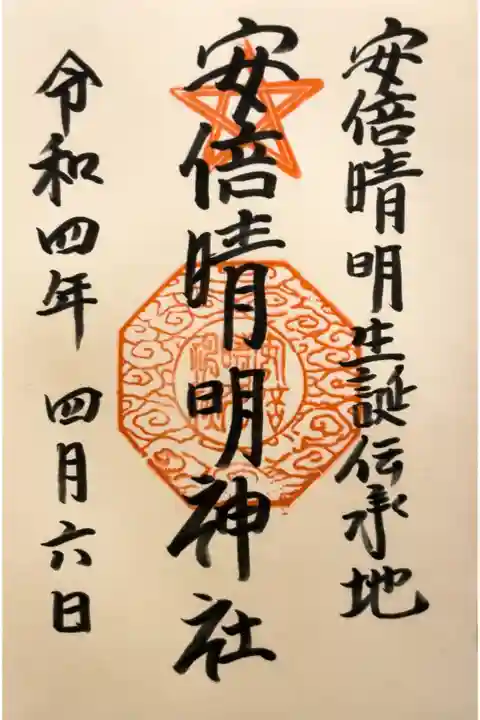 安倍晴明生誕伝承地
安倍晴明神社
令和四年 四月六日